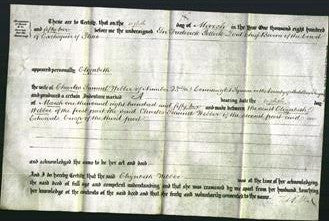 These are to Certify, that on the eighth day of March in the Year One thousand eight hundred
and fifty two before me the undersigned Sir Frederick Pollock Lord Chief Baron of the Court
of Exchequer of Pleas
appeared personally Elizabeth
the wife of Charles Samuel Webber of Number Connaught Square in the County of Middlesex
and produced a certain Indenture marked A bearing date the eighth day
of March one thousand eight hundred and fifty two and made between the said Elizabeth
Webber of the first part the said Charles Samuel Webber of the second part and
Edwards of the third part
and acknowledged the same to be her act and deed
And I do hereby Certify that the said Elizabeth Webber was at the time of her acknowledging
the said deed of full age and competent understanding, and that she was examined by me apart from her husband, touching
her knowledge of the contents of the said deed, and that she freely and voluntarily consented to the same.